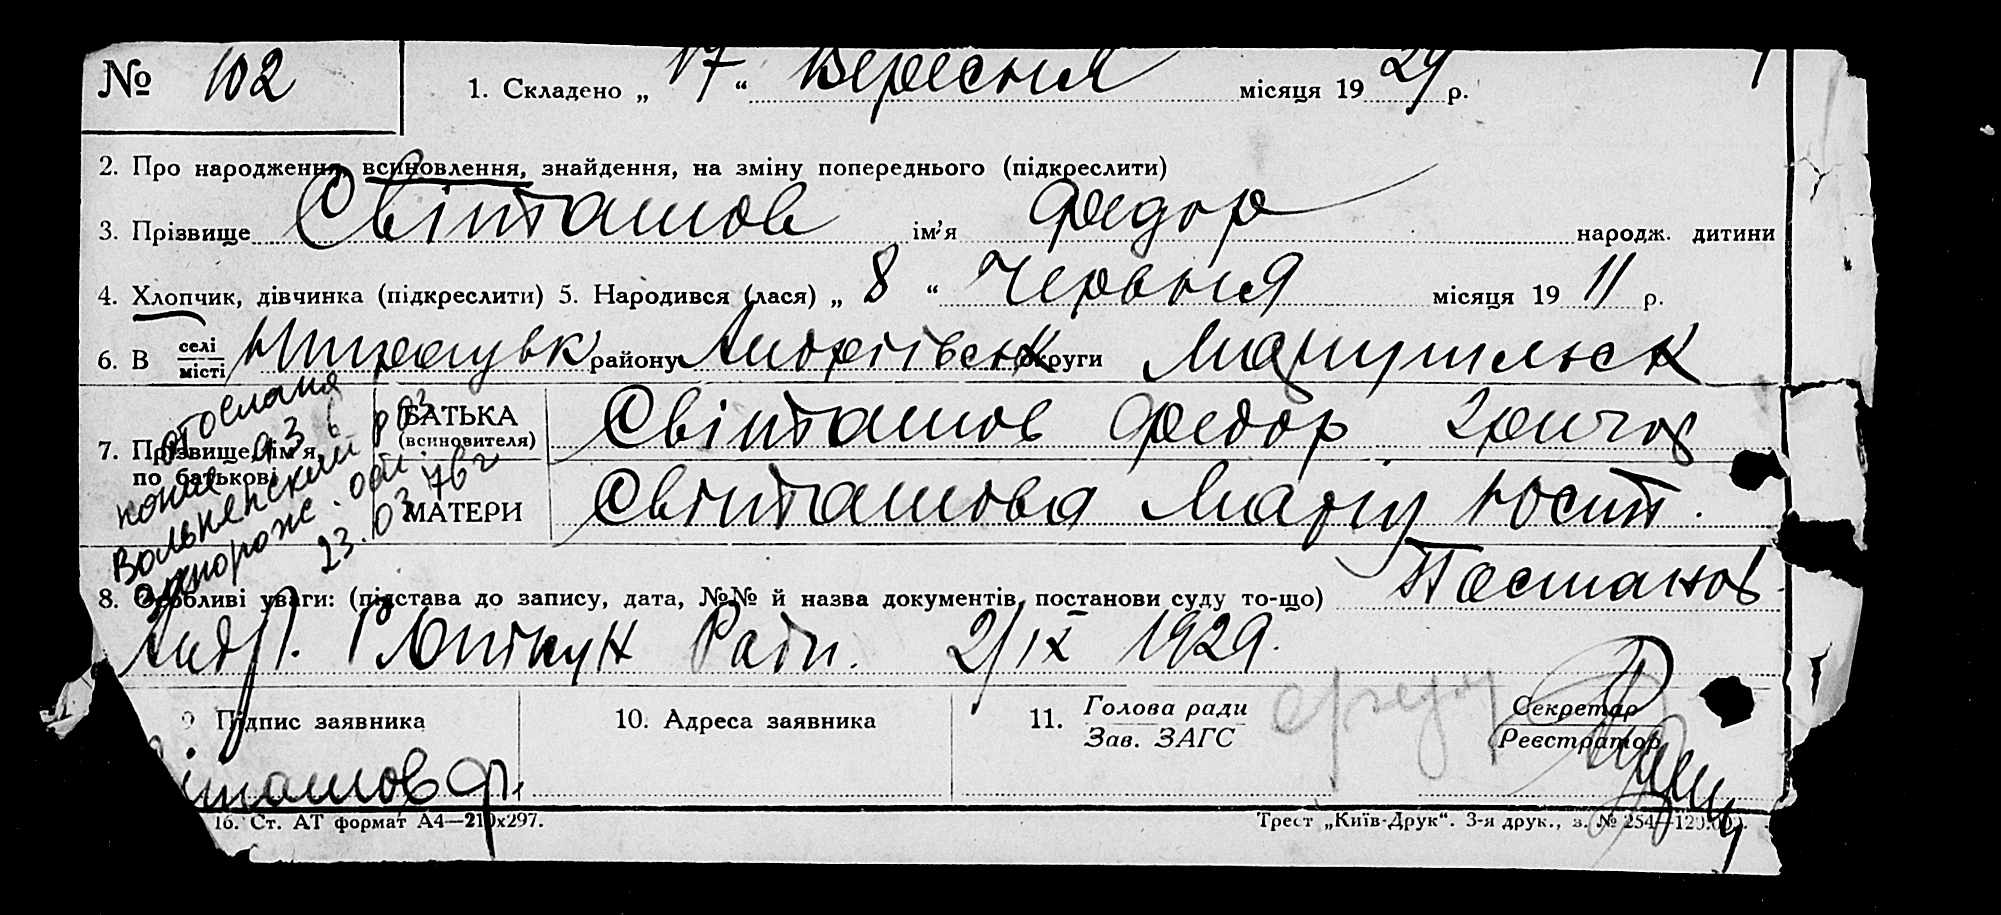 № 102
1. Складено „ 17 “ Вересня місяця 19 29 р.
2. Про народження, всиновлення, знайдення, на зміну попереднього (підкреслити)
3. Прізвище Свінташов ім’я Федор народж. дитини
4. Хлопчик, дівчинка (підкреслити) 5. Народився (лася) „ 8 “ Червня місяця 19 11 р.
6. В селі
місті району Андріївськ округи Маріупільськ
7. Прізвище, ім’я,
по батькові
БАТЬКА
(всиновителя)
Свінташов Федор
МАТЕРИ Свінташова Марія Юст.
отослана
копия в
Вольнянский
Запорож. обл.
23.03.76г
8. Особливі уваги: (підстава до запису, дата, №№ й назва документів, постанови суду то-що) Постанов
Андр. Ради. 2/IX 1929.
9 Підпис заявника
10. Адреса заявника
11. Голова ради
Зав. ЗАГС
Секретар
Реєстратор
інташов Ф.
16. Ст. АТ формат А4—210х297.
Трест „Київ-Друк“. 3-я друк., з. № 254—120.000.